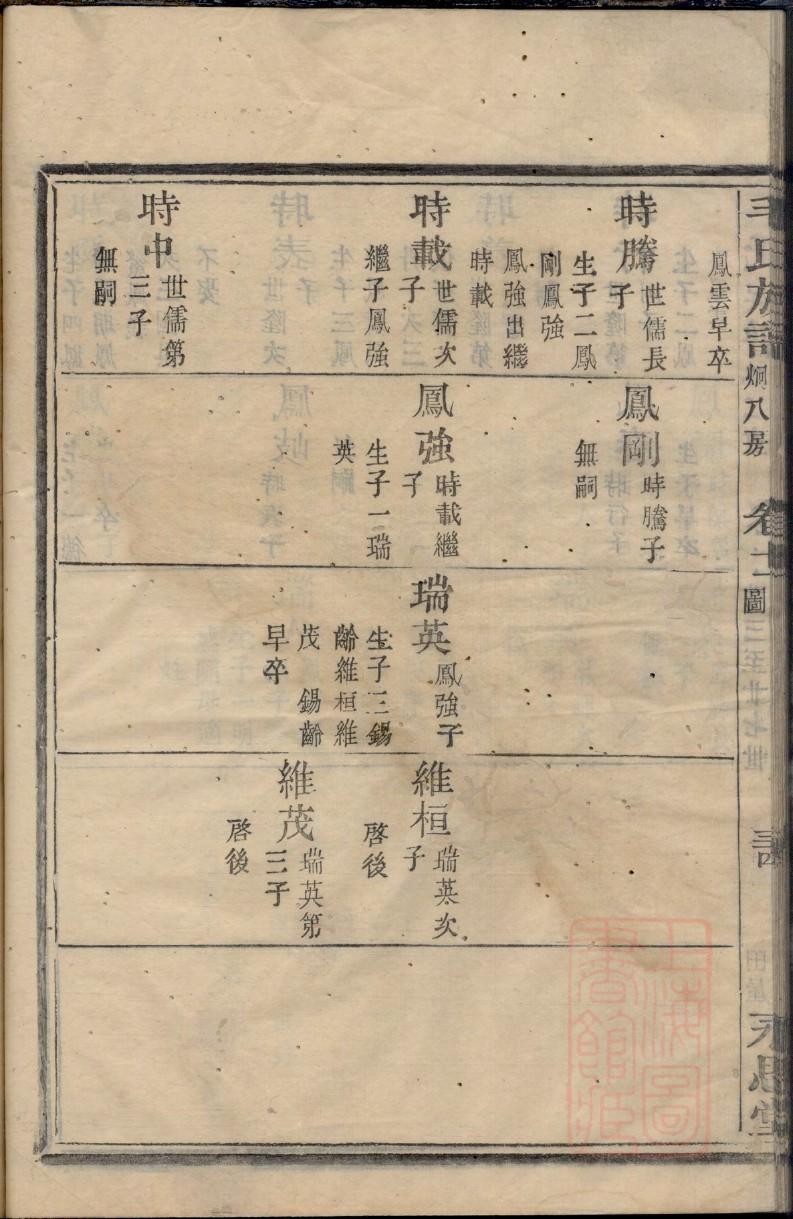 毛氏族譜
炯八房
圖
永思堂
鳳雲早卒
時騰
世儒長
子
生子二鳳
剛鳳強
鳳強出繼
時載
時載
世儒次
子
繼子鳳強
時中
世儒第
三子
無嗣
鳳剛
時騰子
無嗣
鳳強
時載繼
子
生子一瑞
英
瑞英
鳳強子
生子三錫
齡維桓維
茂　錫齡
早卒
維桓
瑞英次
子
啓後
維茂
瑞英第
三子
啓後
上海圖
書館藏